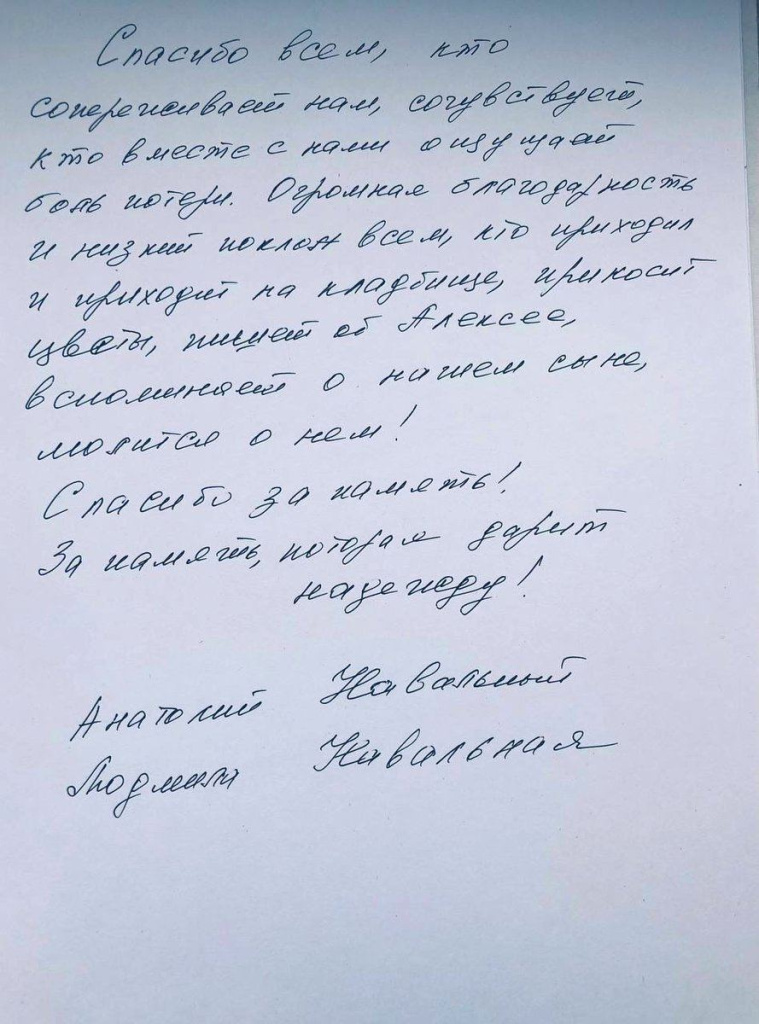 Спасибо всем, кто
сопереживает нам, сочувствует,
кто вместе с нами ощущает
боль потери. Огромная благодарность
и низкий поклон всем, кто приходил
и приходит на кладбище, приносит
цветы, пишет об Алексее,
вспоминает о нашем сыне,
молится о нем!
Спасибо за память!
За память, которая дарит
надежду!
Анатолий Навальный
Людмила Навальная